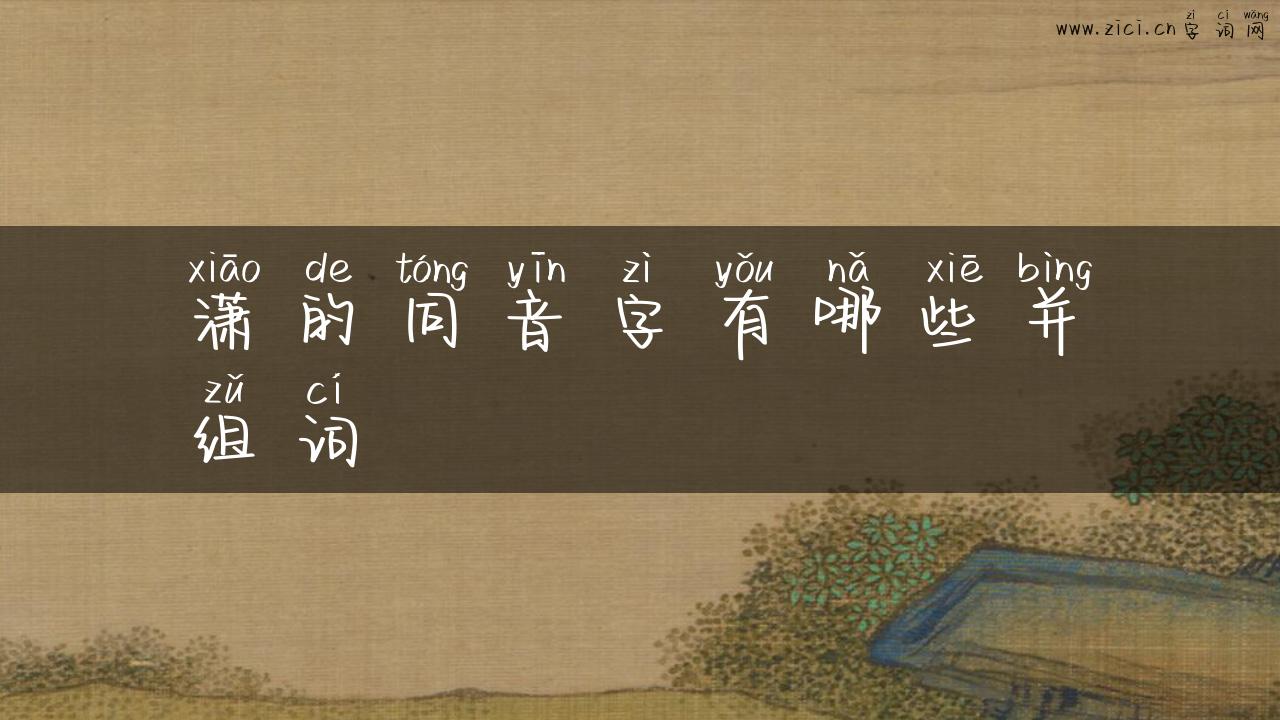 zì cí wǎng
www.zici.cn 字 词 网
xiāo de tóng yīn zì yǒu nǎ xiē bìng
潇 的 同 音 字 有 哪 些 并
zǔ cí
组 词